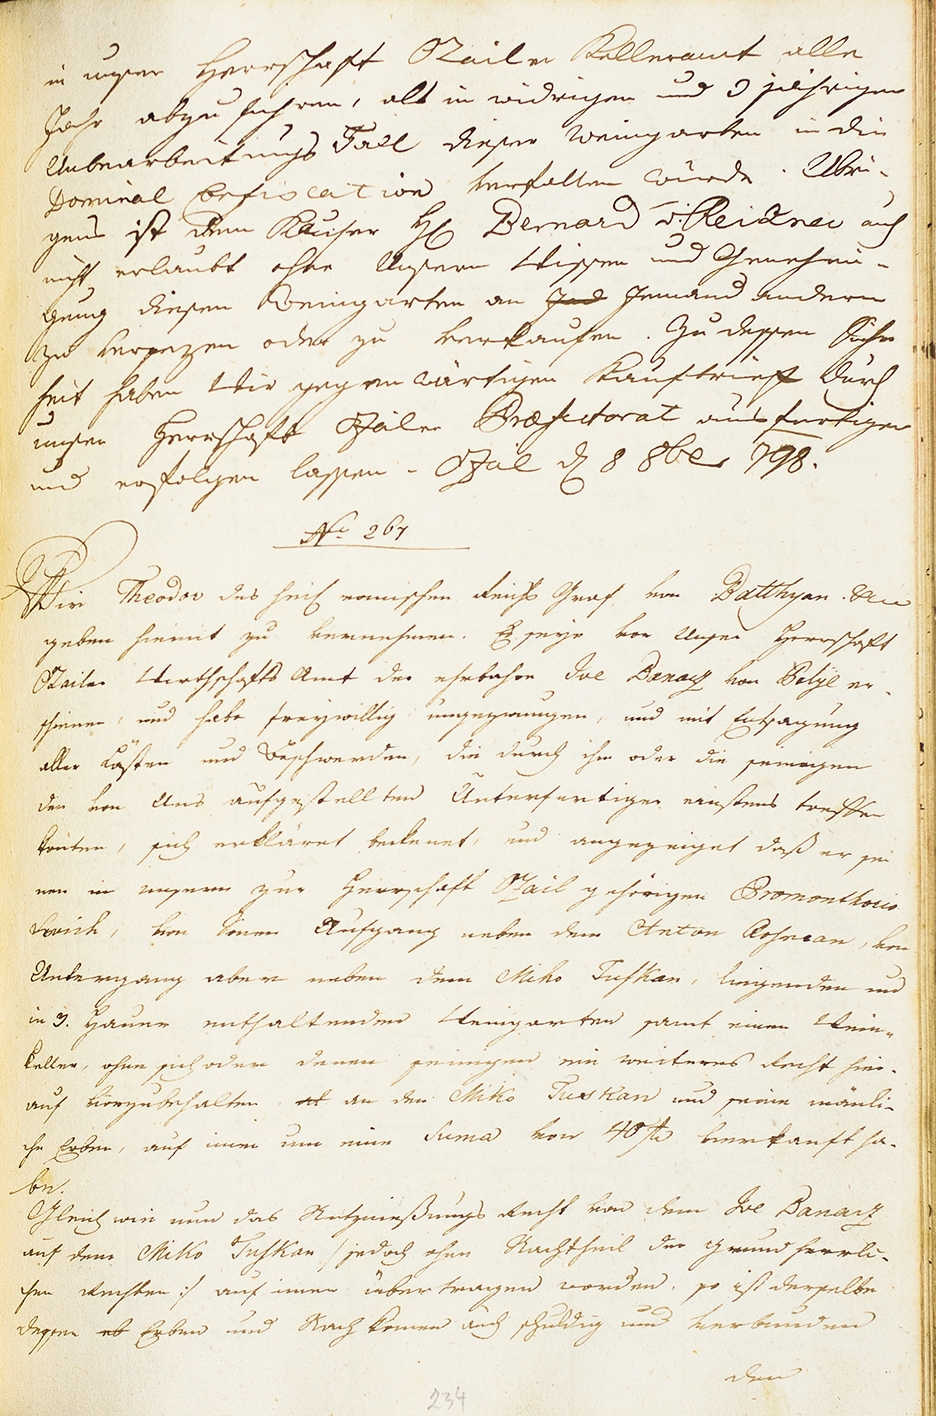 in unser Herrschaft Ozailer Kelleramt alle
Jahr abzuführen, als in widrigen und 3 jährigen
Unbearbeitungs Fall dieser Weingarten in die
Dominal Confiscation verfallen würde. Übri-
gens ist dem Käufer H Bernard v: Reidner auch
nicht erlaubt ohne Unserm Wissen und Genehmi-
gung diesen Weingarten an Jemand andern
zu versezen oder zu verkaufen. Zu dessen Sicher
heit haben Wir gegenwärtigen Kaufbrief durch
unser Herrschaft Ozaler Præfectorat ausfertigen
und erfolgen lassen. Ozal d 8 8ber 798.
No 267
Wir Theodor des heil romischen Reichs Graf von Batthyan.
geben hiemit zu vernehmen. Es seye vor Unser Herrschaft
Ozailer Wirthschafts Amt der ehrbahre Ive Banacz von Belye er-
schienen, und habe freywillig ungezwungen, und mit Entsagung
aller Lästen und Beschwerden, die durch ihn oder die seinigen
den von Uns aufgestellten Unterfertiger einstens treffen
könten, sich erkläret bekenet, und angezeiget daß er sei
nen in unserm zur Herrschaft Ozail gehörigen Promonthorio
Svrich, von Sonen Aufgang neben dem Anton Rosman, von
Untergang aber neben dem Miko Tuskan, liegenden und
in 3. Hauer enthaltenden Weingarten samt einen Wein-
keller, ohne sich oder denen seinigen ein weiteres Recht hier-
auf vorzubehalten, an den Miko Tuskan und seine mänli-
che Erben, auf imer um eine Suma von 40 f verkauft ha-
ben.
Gleich wie nun das Nutznießungs Recht von dem Ive Banacz
auf dem Miko Tuskan /: jedoch ohne Nachtheil der grundherrli-
chen Rechten :/ auf imer übertragen worden, so ist derselbe
dessen Erben und Nachkomen auch schuldig und verbunden
den
234